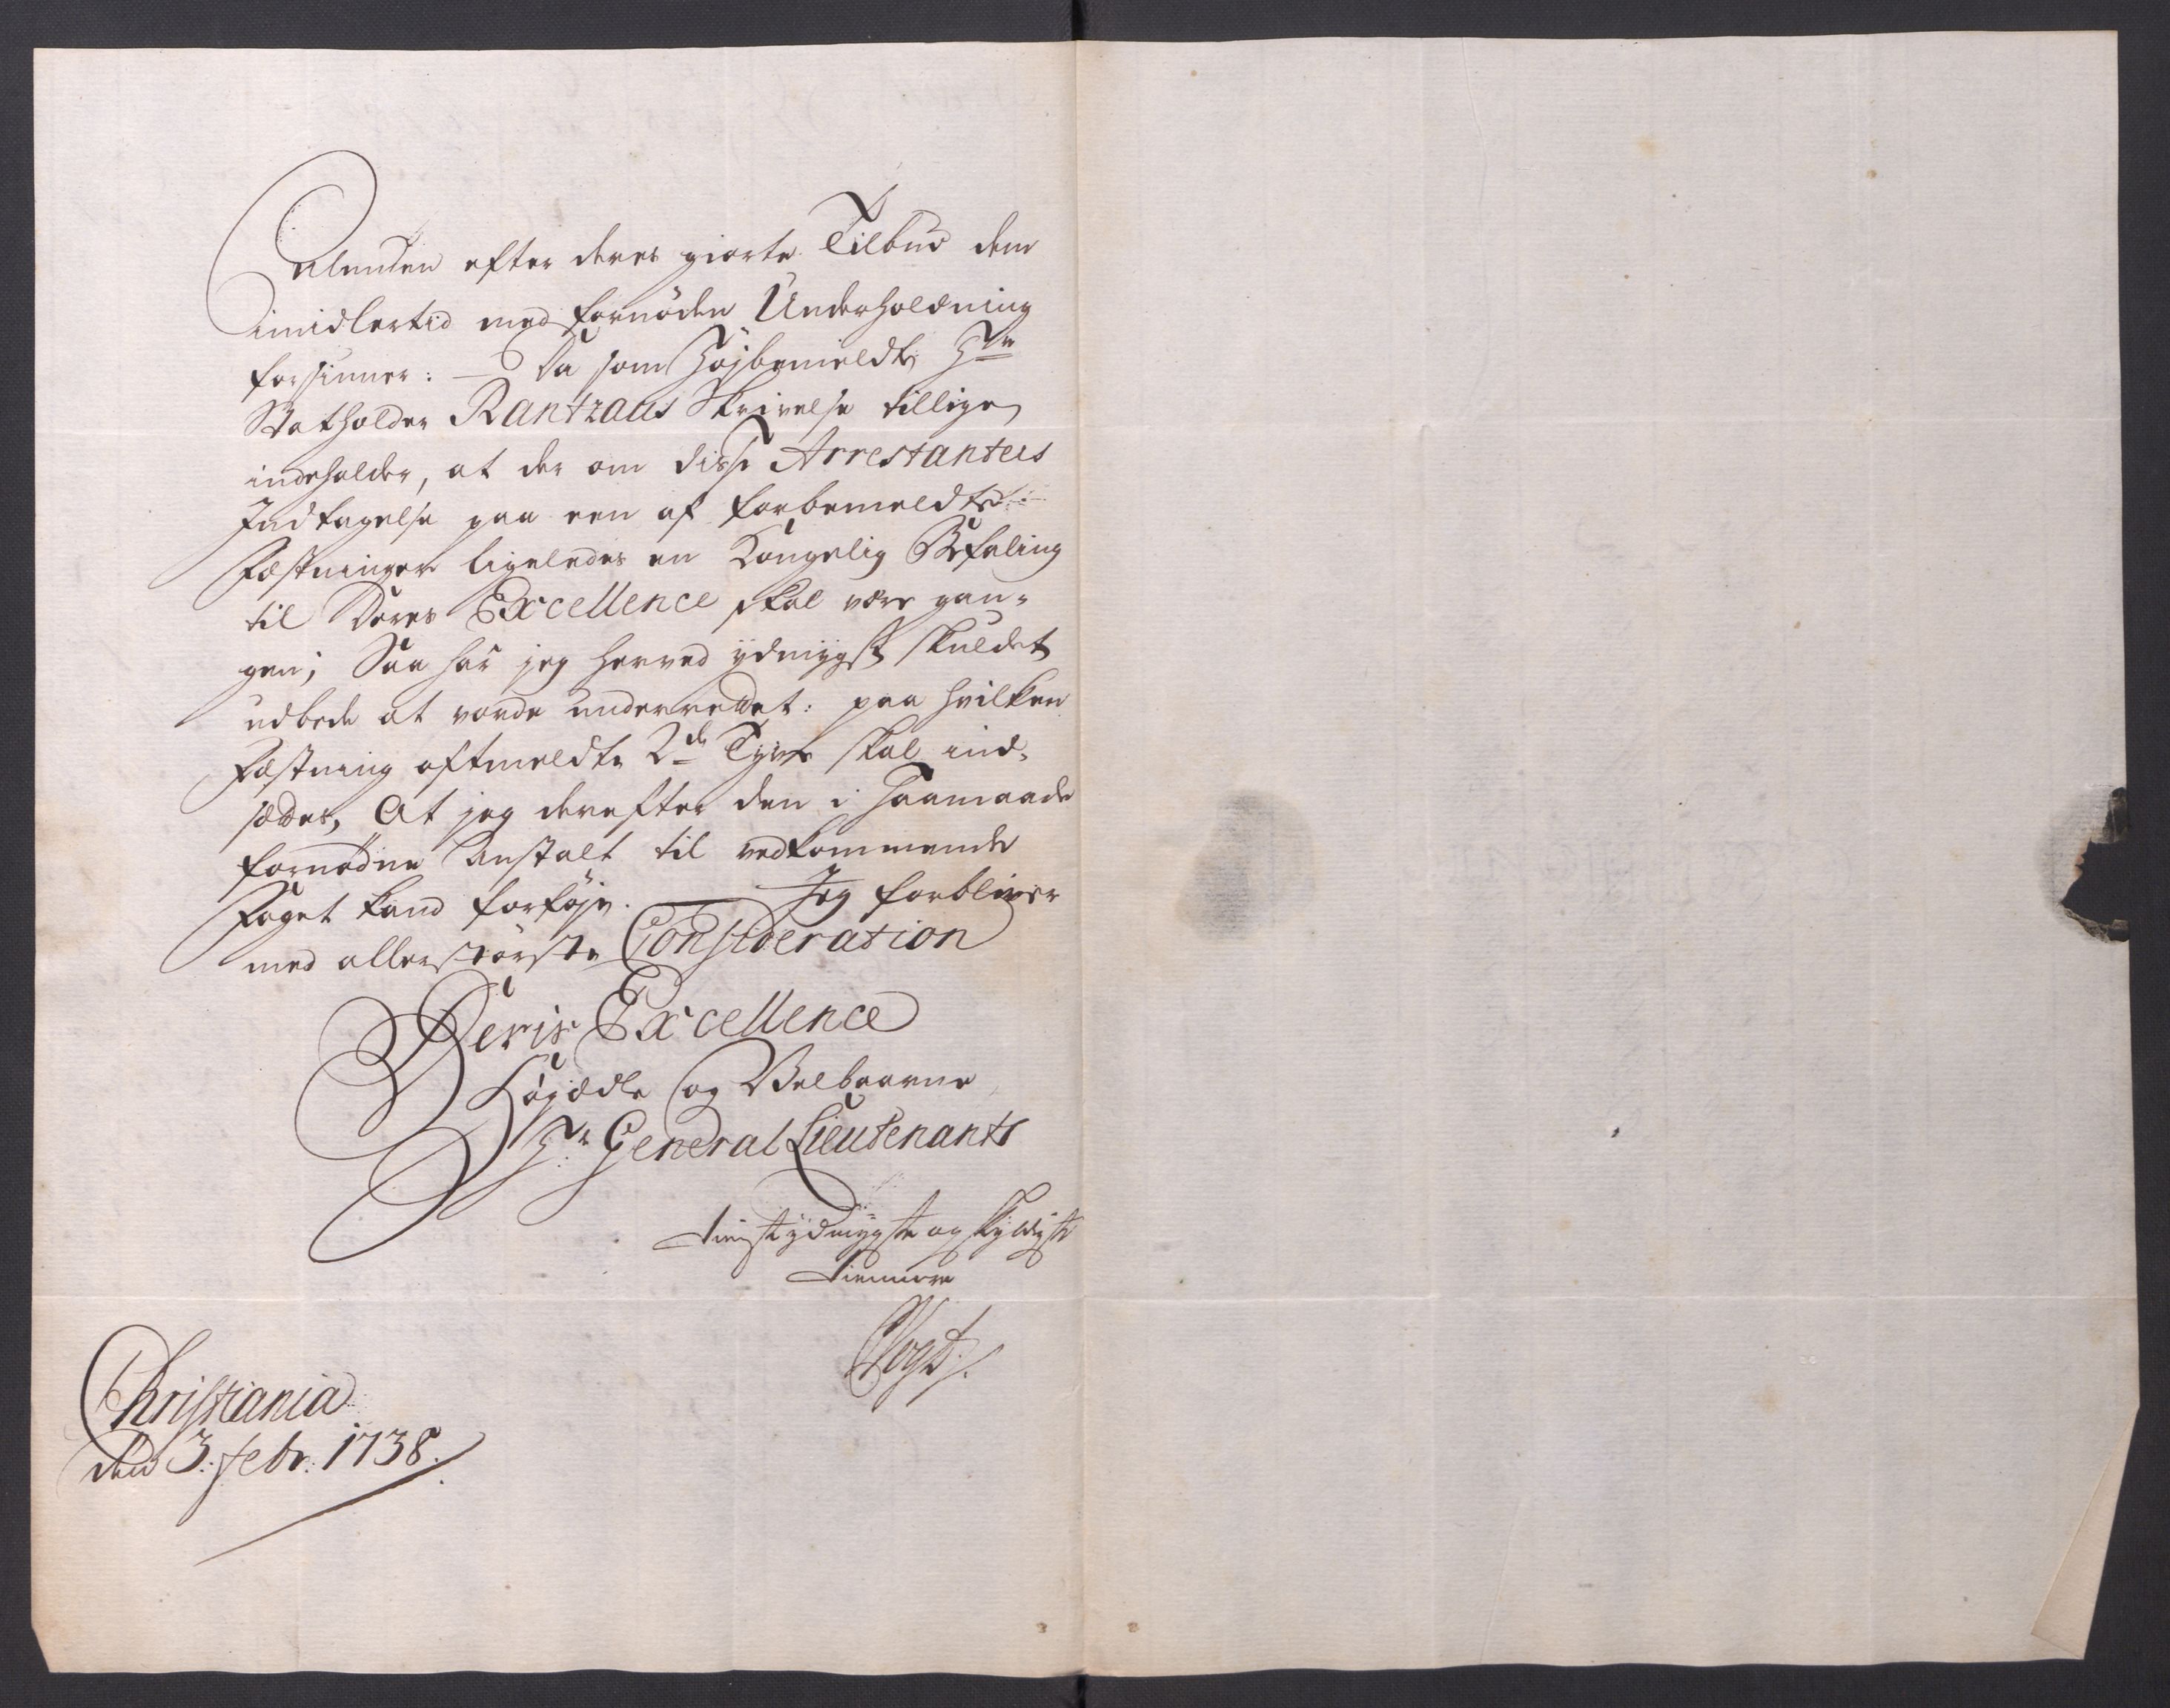 Almuen efter deres giorte Tilbud dem
imidlertid med fornöden Underholdning
forsiuner: — Da som Højbemeldte Hr
Statholder Rantzaus Skrivelse tillige
indeholder, at der om disse Arrestanters
Indtagelse paa een af forbemeldte
Fæstninger ligeledes en Kongelig Befaling
til Deres Excellence skal være gan-
gen; Saa har jeg herved ydmygst skuldet
udbede at vorde underrettet: paa hvilken
Fæstning oftmeldte 2de Tyve skal ind-
sættes, At jeg derefter den i saamaade
fornødne Anstalt til vedkommende
Foget kand forföje. — Jeg forbliver
med allerstörste Consideration
Deris Excellence
Højædle og Velbaarne
Hr. General Lieutenants
Tienstydmygste og skyldigste
Tiennere
Vogt.
Christiania
den 3: febr: 1738.